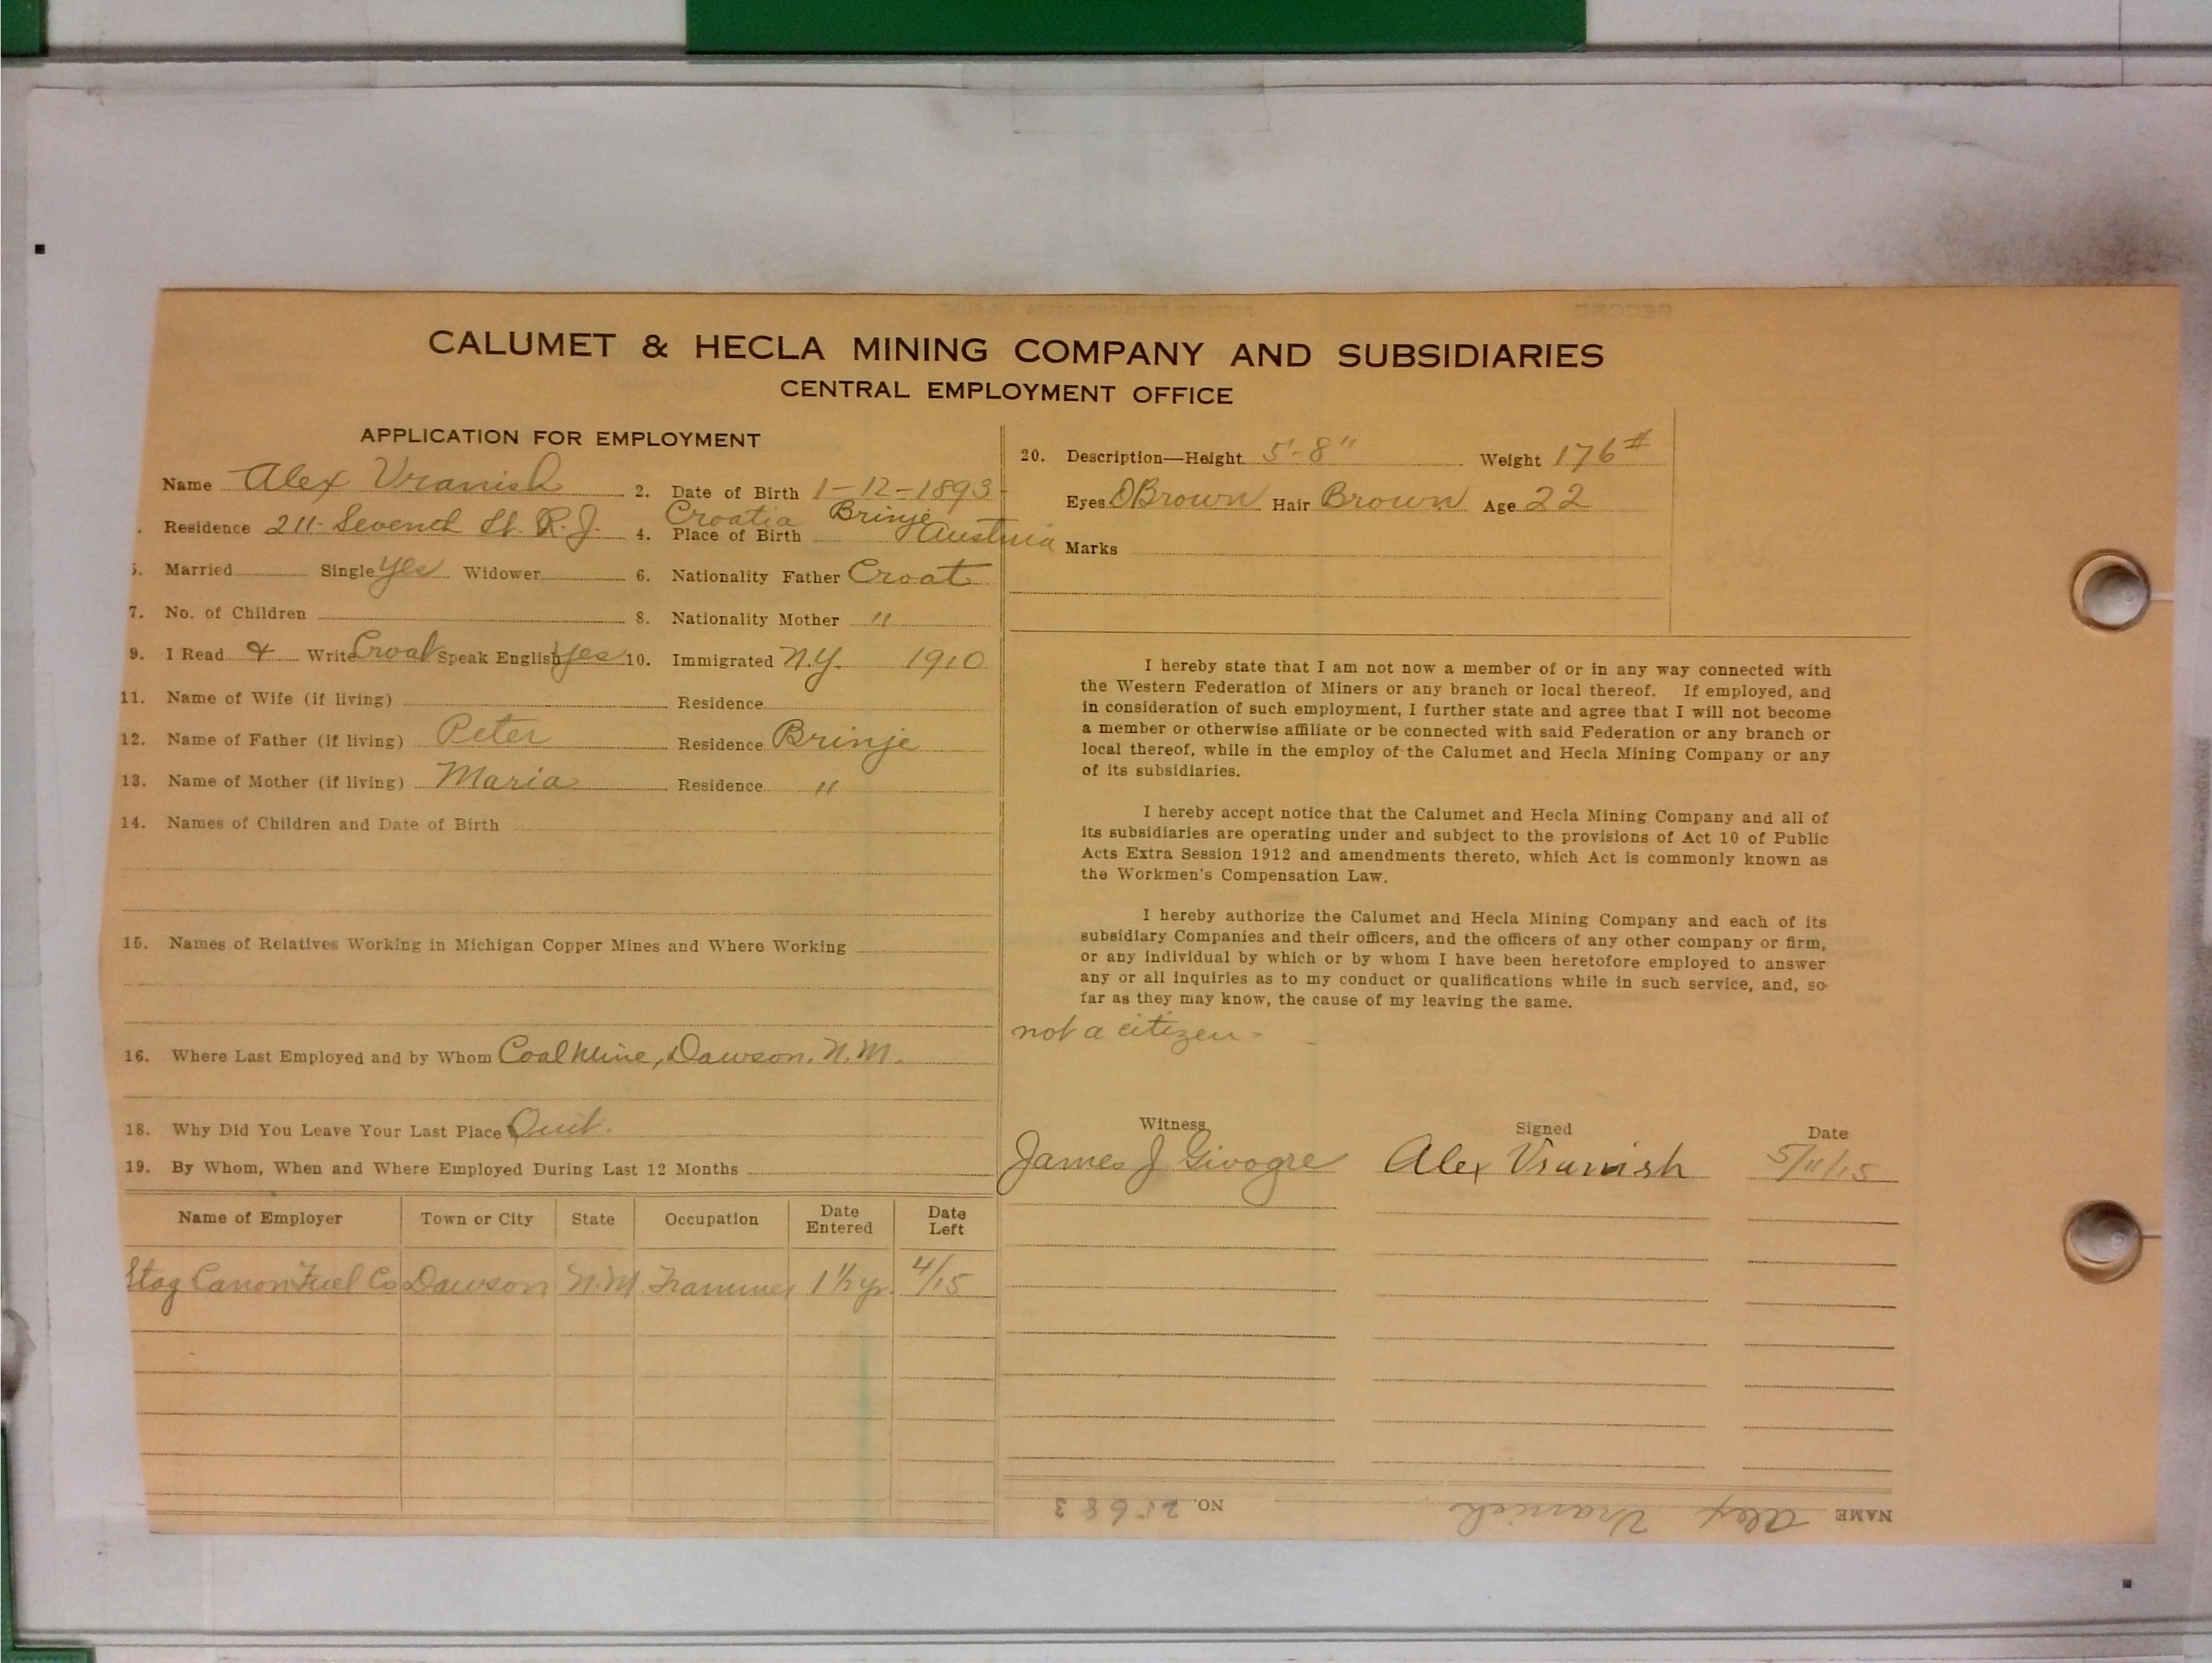 CALUMET & HECLA MINING COMPANY AND SUBSIDIARIES
CENTRAL EMPLOYMENT OFFICE
APPLICATION FOR EMPLOYMENT
Name Alex Vranish 2. Date of Birth 1-12-1893
Croatia Brinje
. Residence 211- Seventh St. R.J. 4. Place of Birth Austria
5. Married Single Yes Widower 6. Nationality Father Croat
7. No. of Children 8. Nationality Mother "
9. I Read & Write Croat Speak English Yes 10. Immigrated N.Y. 1910
11. Name of Wife (if living) Residence
12. Name of Father (if living) Peter Residence Brinje
13. Name of Mother (if living) Maria Residence "
14. Names of Children and Date of Birth
15. Names of Relatives Working in Michigan Copper Mines and Where Working
16. Where Last Employed and by Whom Coal Mine, Dawson, N.M.
18. Why Did You Leave Your Last Place Quit.
19. By Whom, When and Where Employed During Last 12 Months
Name of Employer Town or City State Occupation Date Entered Date Left
Stag Canon Fuel Co Dawson N.M. Trammer 1½ yr. 4/15
20. Description—Height 5'-8" Weight 176#
Eyes DBrown Hair Brown Age 22
Marks
I hereby state that I am not now a member of or in any way connected with
the Western Federation of Miners or any branch or local thereof. If employed, and
in consideration of such employment, I further state and agree that I will not become
a member or otherwise affiliate or be connected with said Federation or any branch or
local thereof, while in the employ of the Calumet and Hecla Mining Company or any
of its subsidiaries.
I hereby accept notice that the Calumet and Hecla Mining Company and all of
its subsidiaries are operating under and subject to the provisions of Act 10 of Public
Acts Extra Session 1912 and amendments thereto, which Act is commonly known as
the Workmen's Compensation Law.
I hereby authorize the Calumet and Hecla Mining Company and each of its
subsidiary Companies and their officers, and the officers of any other company or firm,
or any individual by which or by whom I have been heretofore employed to answer
any or all inquiries as to my conduct or qualifications while in such service, and, so
far as they may know, the cause of my leaving the same.
not a citizen -
Witness Signed Date
James J Givogre Alex Vranish 5/11/15
NAME Alex Vranish NO. 25683